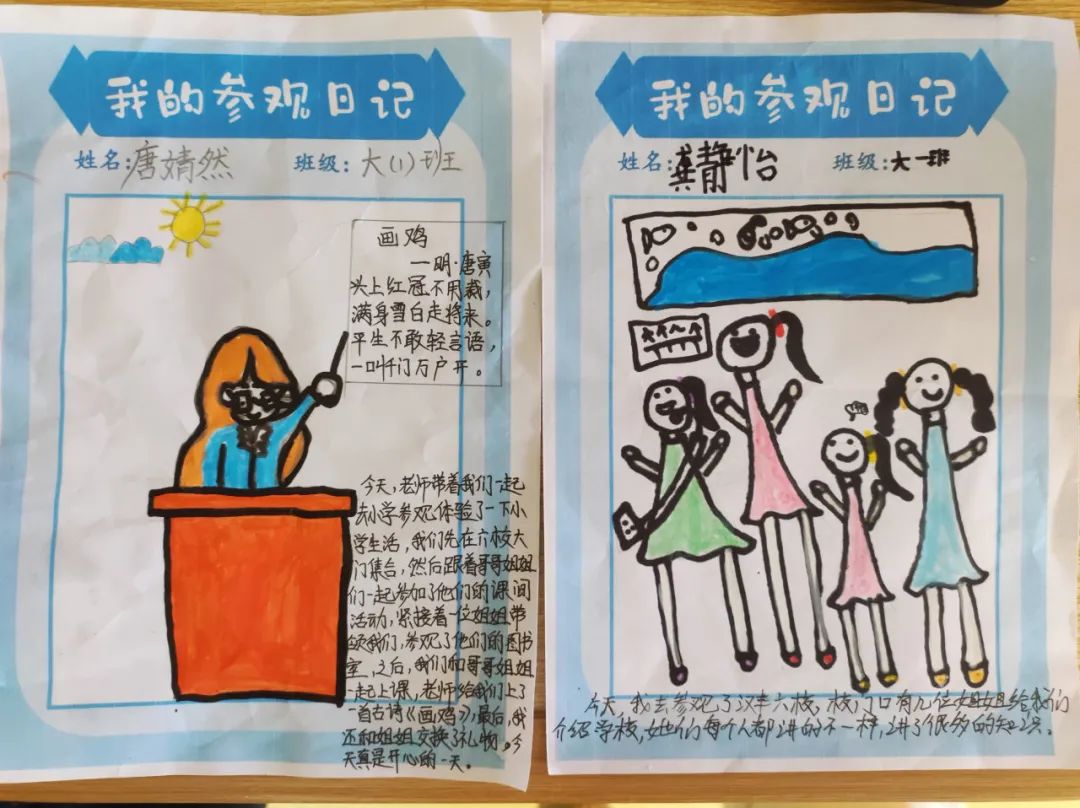 我的参观日记
姓名:唐婧然 班级:大(1)班
画鸡
一明·唐寅
头上红冠不用裁,
满身雪白走将来。
平生不敢轻言语,
一叫千门万户开。
今天,老师带着我们一起
去小学参观,体验了一下小
学生活,我们先在六校大
门集合,然后跟着哥哥姐姐
们一起参加了他们的课间
活动,紧接着一位姐姐带
领我们,参观了他们的图书
室,之后,我们和哥哥姐姐
一起上课,老师给我们上了
一首古诗《画鸡》,最后,我
还和姐姐交换了礼物。今
天真是开心的一天。
我的参观日记
姓名:龚静怡 班级:大一班
今天,我去参观了汉丰六校,校门口有几位姐姐给我们
介绍学校,她们每个人都讲的不一样,讲了很多的知识。